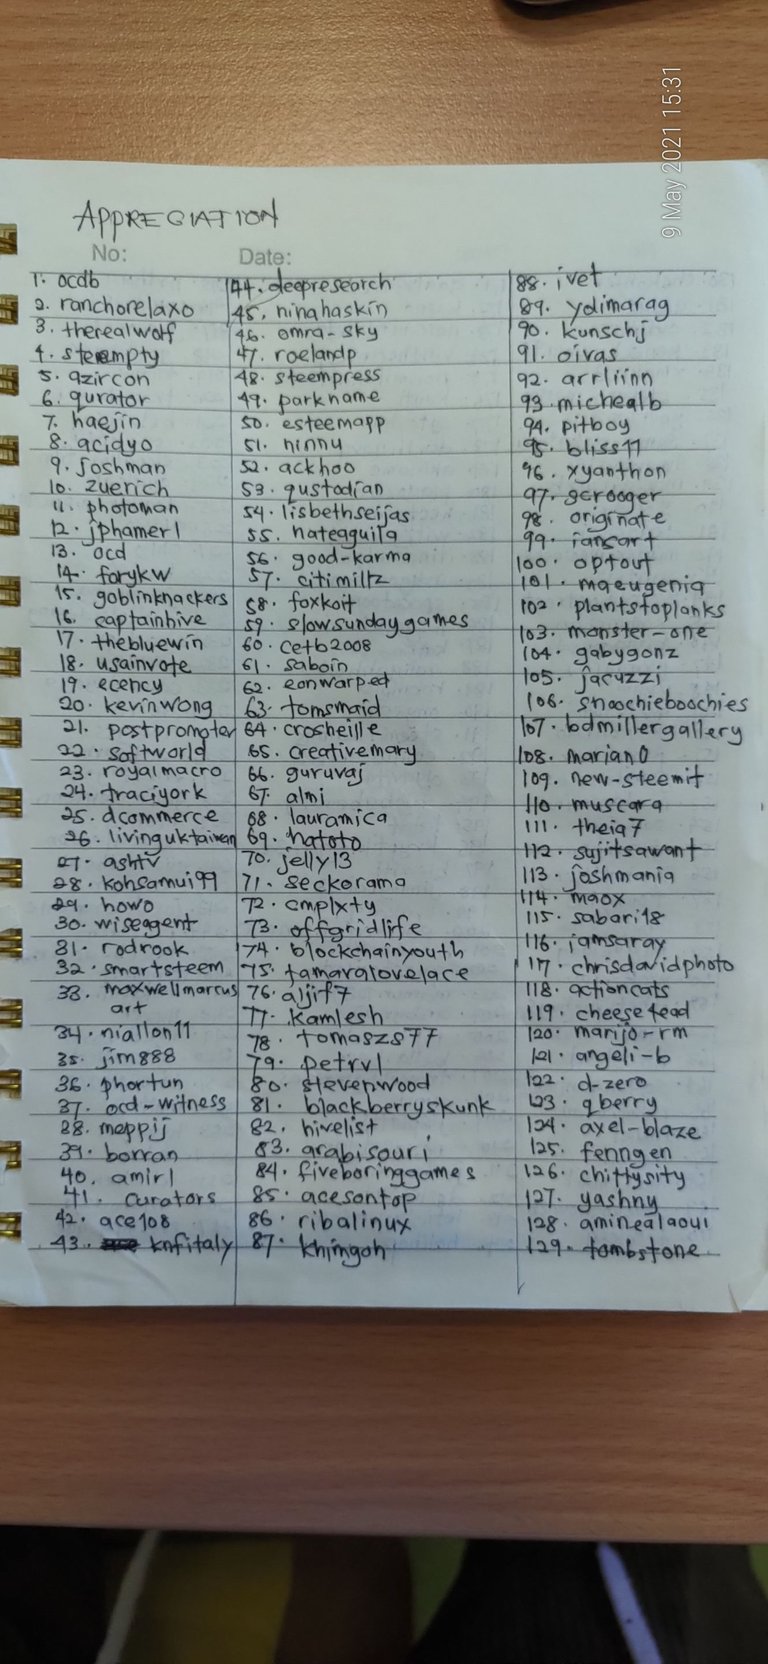 9 May 2021 15:31
APPRECIATION
No:
Date:
1. ocdb
2. ranchorelaxo
3. therealwolf
4. steempty
5. azircon
6. qurator
7. haejin
8. acidyo
9. joshman
10. zuerich
11. photoman
12. jphamer1
13. ocd
14. forykw
15. goblinknackers
16. captainhive
17. thebluewin
18. usainvote
19. ecency
20. kevinwong
21. postpromoter
22. softworld
23. royalmacro
24. traciyork
25. dcommerce
26. livinguktaiwan
27. ashtv
28. kohsamui99
29. howo
30. wiseagent
31. rodrook
32. smartsteem
33. maxwellmarcus
art
34. niallon11
35. jim888
36. phortun
37. ocd-witness
38. meppij
39. borran
40. amirl
41. curators
42. ace108
43. knfitaly
44. deepresearch
45. ninahaskin
46. omra-sky
47. roelandp
48. steempress
49. parkname
50. esteemapp
51. ninnu
52. ackhoo
53. qustodian
54. lisbethseijas
55. nateaguila
56. good-karma
57. citimillz
58. foxkoit
59. slowsundaygames
60. cetb2008
61. saboin
62. eonwarped
63. tomsmaid
64. crosheille
65. creativemary
66. guruvaj
67. almi
68. lauramica
69. hatoto
70. jelly13
71. seckorama
72. cmplxty
73. offgridlife
74. blockchainyouth
75. tamaralovelace
76. aljif7
77. kamlesh
78. tomaszs77
79. petrvl
80. stevenwood
81. blackberryskunk
82. hivelist
83. arabisouri
84. fiveboringgames
85. acesontop
86. ribalinux
87. khimgoh
88. ivet
89. ydimarag
90. kunschj
91. oivas
92. arrliinn
93. michealb
94. pitboy
95. bliss11
96. xyanthon
97. scrooger
98. originate
99. iansart
100. optout
101. maeugenia
102. plantstoplanks
103. monster-one
104. gabygonz
105. jacuzzi
106. snoochieboochies
107. bdmillergallery
108. marian0
109. new-steemit
110. muscara
111. theia7
112. sujitsawant
113. joshmania
114. maox
115. sabari18
116. iamsaray
117. chrisdavidphoto
118. actioncats
119. cheese4ead
120. manjo-rm
121. angeli-b
122. d-zero
123. qberry
124. axel-blaze
125. fenngen
126. chittysity
127. yashny
128. aminealaoui
129. tombstone